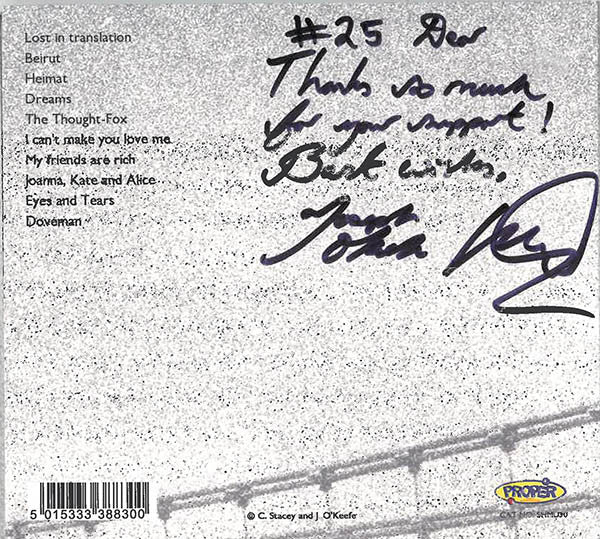 Lost in translation
Beirut
Heimat
Dreams
The Thought-Fox
I can't make you love me
My friends are rich
Joanna, Kate and Alice
Eyes and Tears
Doveman
#25 Dear
Thanks so much
for your support!
Best wishes,
5 015333 388300
© C. Stacey and J O'Keefe
PROPER
CAT NO: